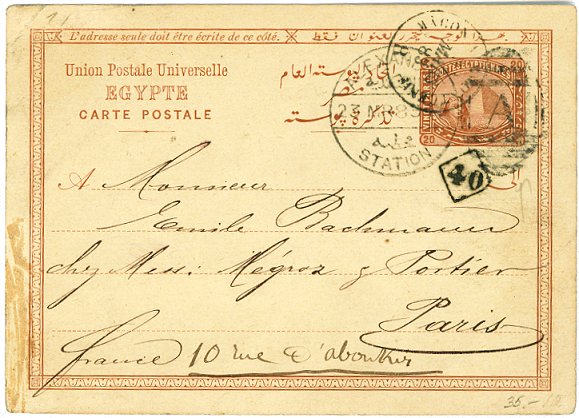 L'adresse seule doit être écrite de ce côté.
Union Postale Universelle
EGYPTE
CARTE POSTALE
تذكرة بوسته
20 20
20
23 MR 89
STATION
A
40
A Monsieur
Emile Bachmann
chez Mess: Mégroz & Portier
Paris
france 10 rue d'aboukir
35.-